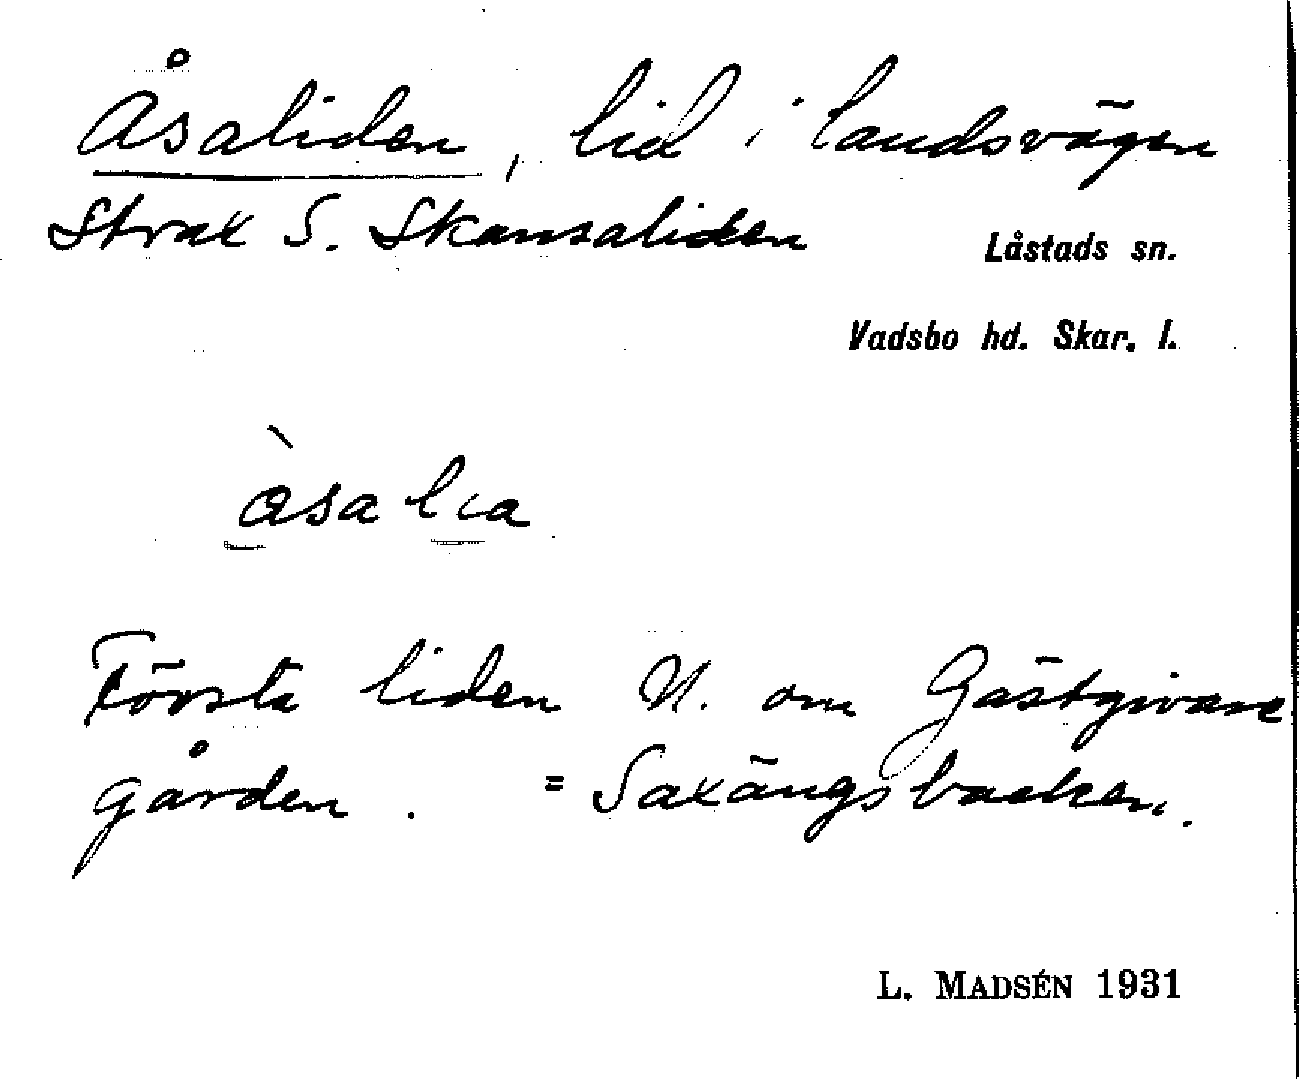 Åsaliden, lid i landsvägen
Strax S. Skansaliden
Låstads sn.
Vadsbo hd. Skar. l.
àsalia
Första liden N. om Gästgivare
gården. = Saxängsbacken.
L. MADSÉN 1931